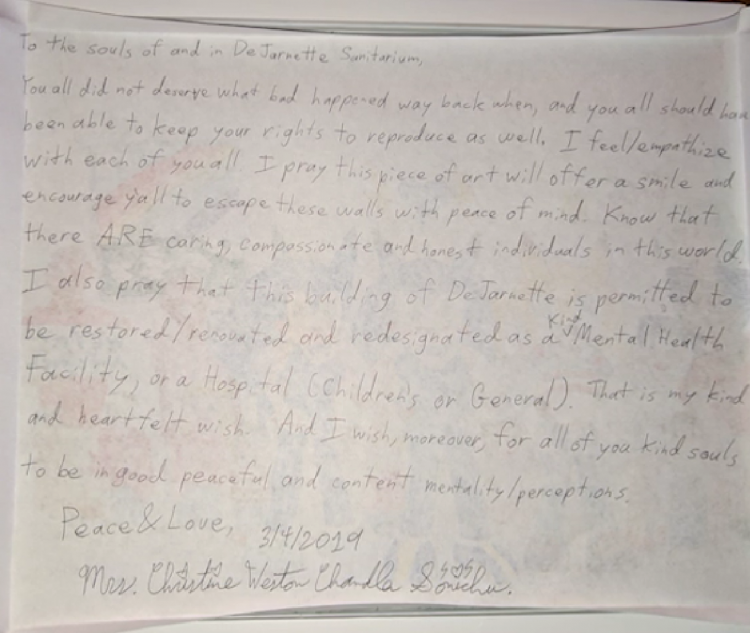 To the souls of and in DeJarnette Sanitarium,
You all did not deserve what bad happened way back when, and you all should hav
been able to keep your rights to reproduce as well. I feel/empathize
with each of you all. I pray this piece of art will offer a smile and
encourage y'all to escape these walls with peace of mind. Know that
there ARE caring, compassionate and honest individuals in this world.
I also pray that this building of DeJarnette is permitted to
be restored/renovated and redesignated as a Kind Mental Health
Facility, or a Hospital (Children's or General). That is my kind
and heartfelt wish. And I wish, moreover, for all of you kind souls
to be in good peaceful and content mentality/perceptions.
Peace & Love, 3/4/2019
Mrs. Christine Weston Chandla Sonichu.